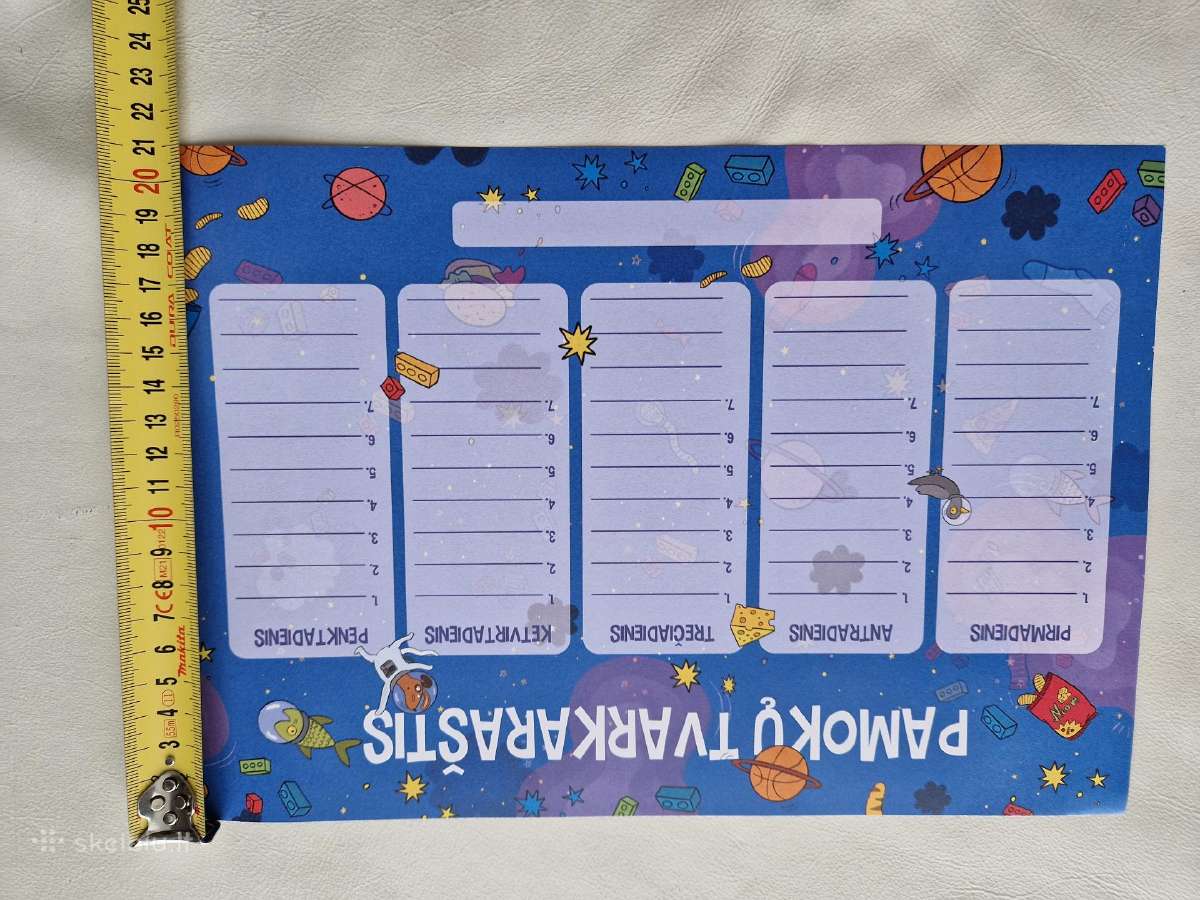 PAMOKŲ TVARKARAŠTIS
PIRMADIENIS
3.
4.
5.
6.
7.
ANTRADIENIS
1.
2.
3.
4.
5.
6.
7.
TREČIADIENIS
1.
2.
3.
4.
5.
6.
7.
KETVIRTADIENIS
2.
3.
4.
5.
6.
7.
PENKTADIENIS
1.
2.
3.
4.
5.
6.
7.
3 4 5 6 7 8 9 10 11 12 13 14 15 16 17 18 19 20 21 22 23 24 25
5,5m
makita
CE
M21
0122
QUIRA COAT
skelbiu.lt